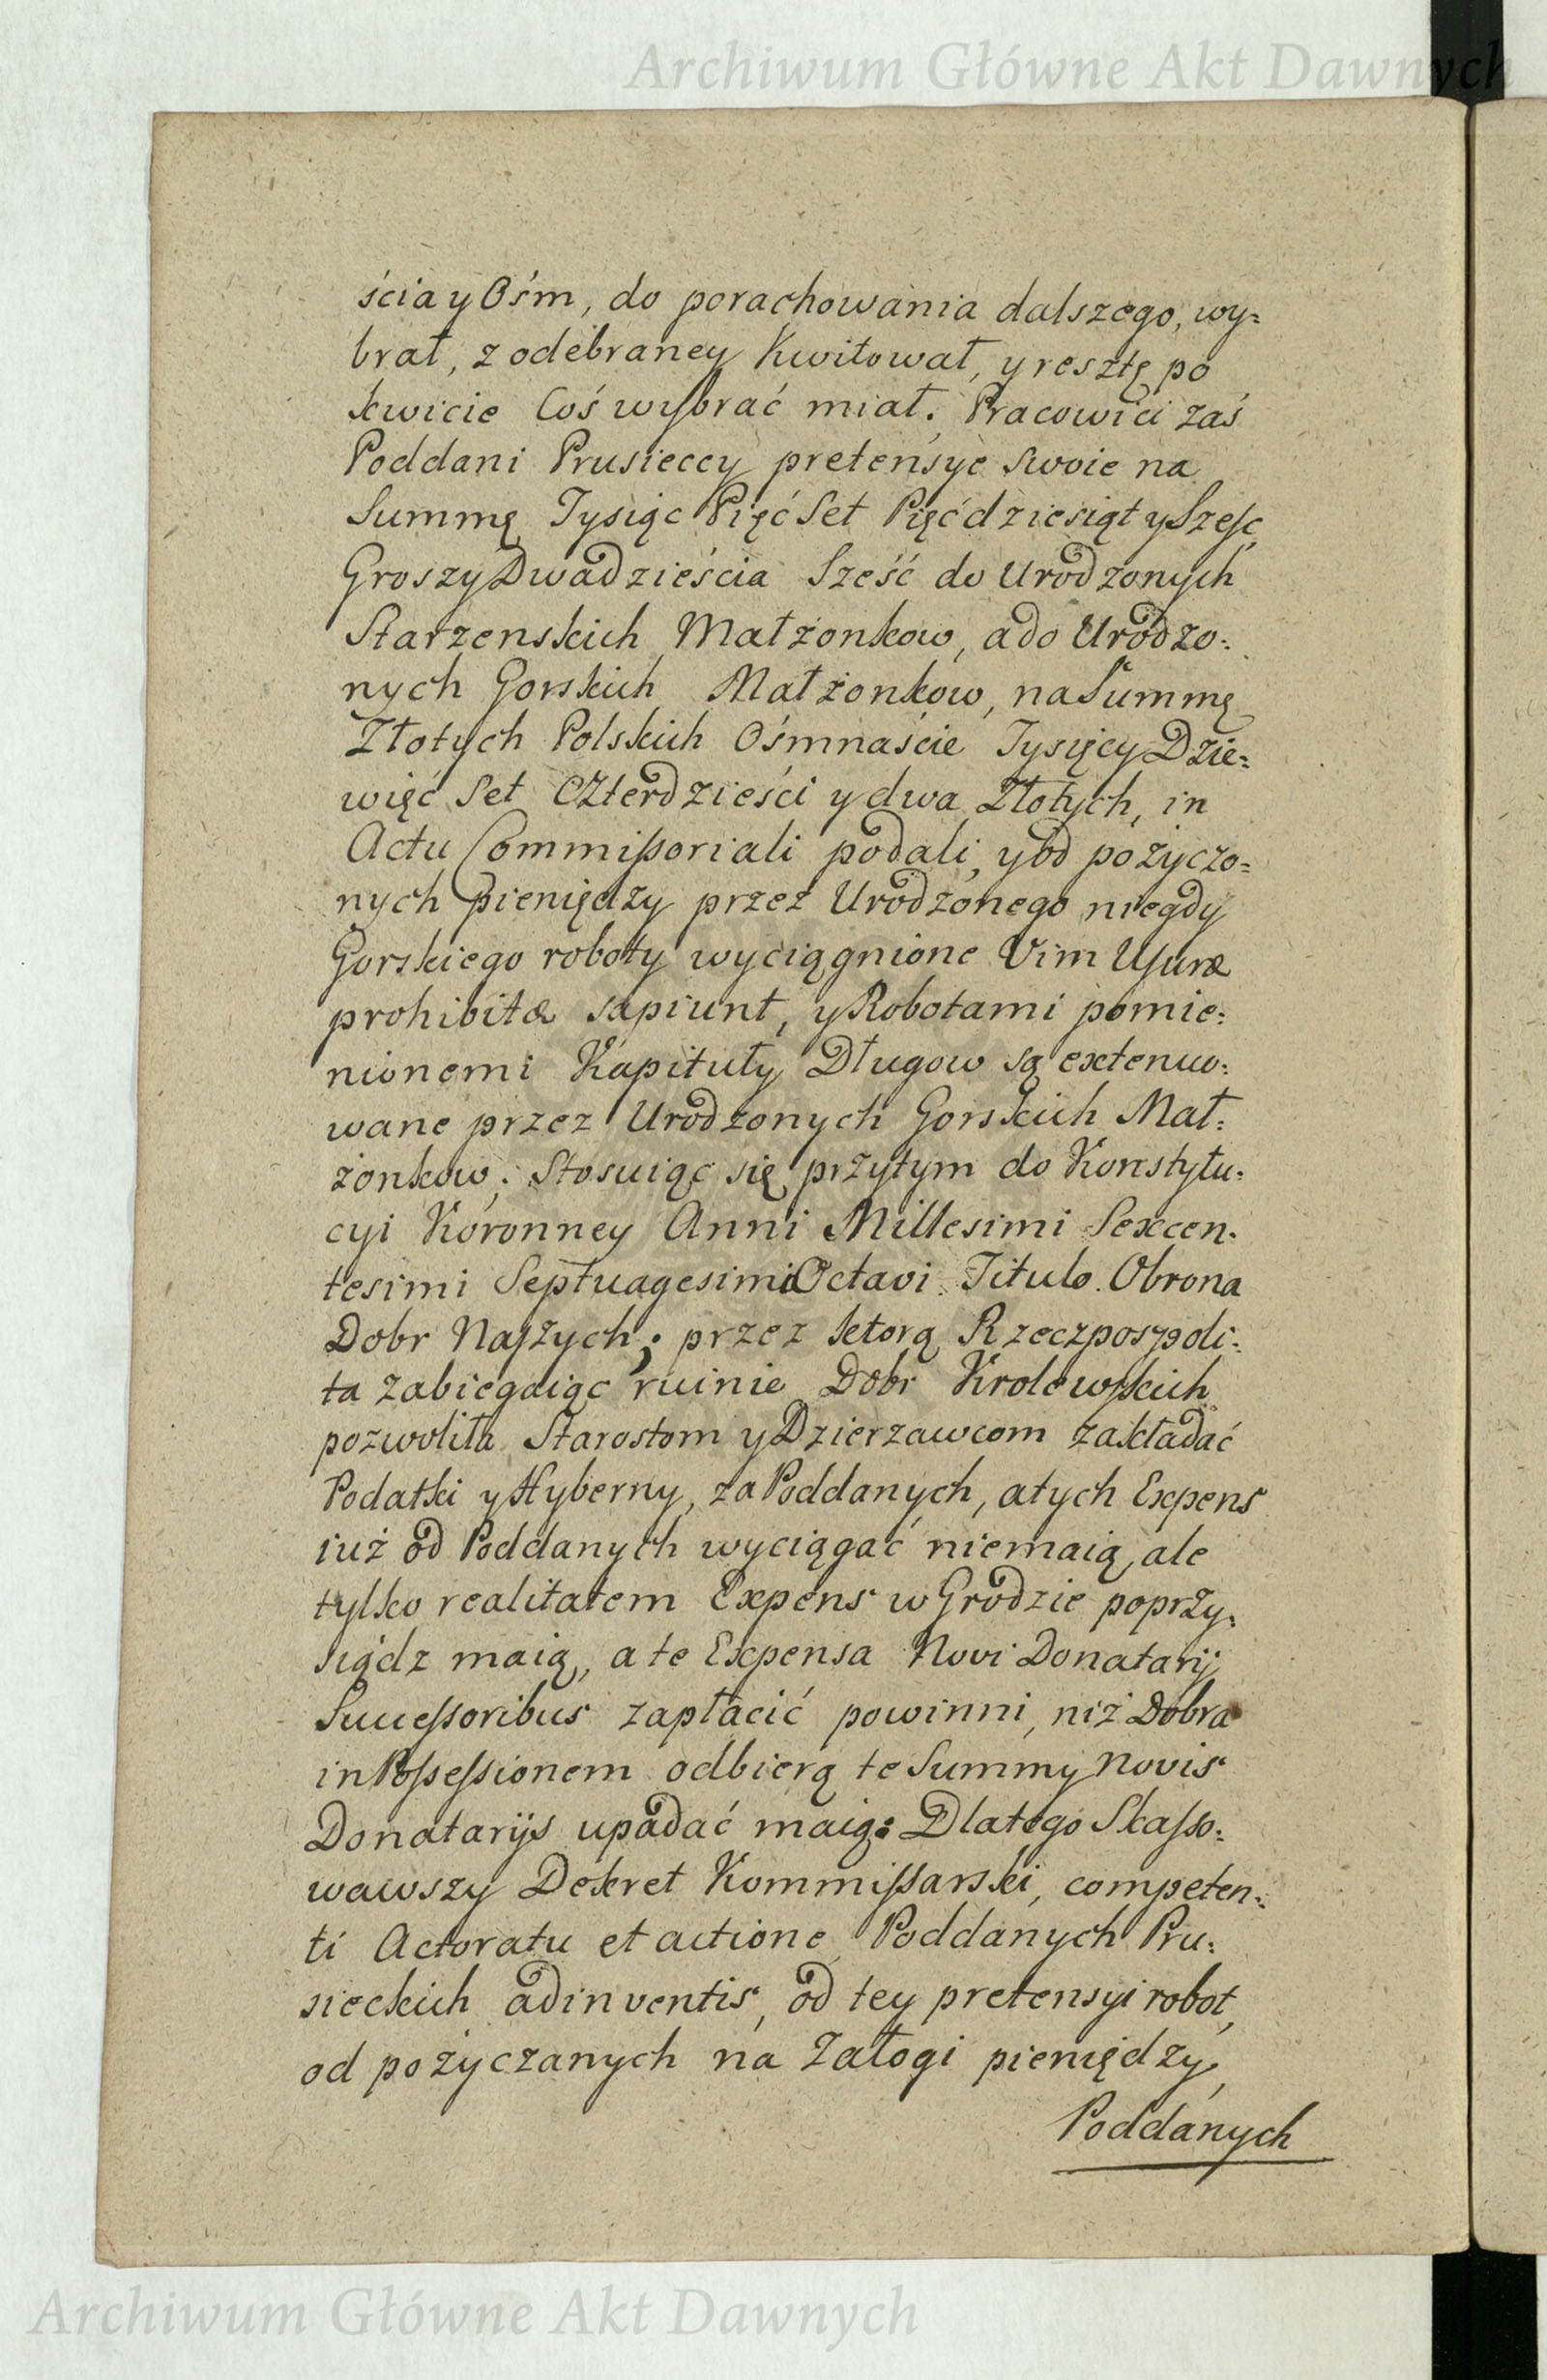 Archiwum Główne Akt Dawnych
ścia y Ośm, do porachowania dalszego, wy=
brał, z odebraney Kwitował, y resztę po
kwicie Coś wybrać miał. Pracowici zaś
Poddani Prusieccy pretensye swoie na
Summę Tysiąc Pięć Set Pięćdziesiąt y Szesc
Groszy Dwadzieścia Sześć do Urodzonych
Starzenskich Małzonkow, a do Urodzo=
nych Gorskich Małżonkow, na Summę
Złotych Polskich Ośmnaście Tysięcy Dzie=
więć Set Czterdzieści y dwa Złotych, in
Actu Commissoriali podali, y od pożyczo=
nych pieniędzy przez Urodzonego niegdy
Gorskiego roboty wyciągnione Vim Usuræ
prohibitæ sapiunt, y Robotami pomie=
nionemi Kapituły Długow są extenuo=
wane przez Urodzonych Gorskich Mał=
żonkow; Stosuiąc się przytym do Konstytu=
cyi Koronney Anni Millesimi Sexcen=
tesimi Septuagesimi Octavi Titulo Obrona
Dobr Naszych; przez ktorą Rzeczpospoli=
ta zabiegaiąc ruinie Dobr Krolewskich
pozwoliła Starostom y Dzierzawcom zakładać
Podatki y Hyberny, za Poddanych, a tych Expens
iuż od Poddanych wyciągać niemaią, ale
tylko realitatem Expens w Grodzie poprzy=
siądz maią, a te Expensa Novi Donatarij
Successoribus zapłacić powinni, niż Dobra
in Possessionem odbierą te Summy Novis
Donatarijs upadać maią: Dlatego Skasso=
wawszy Dekret Kommissarski, competen=
ti Actoratu et actione Poddanych Pru=
sieckich adinventis, od tey pretensyi robot,
od pożyczanych na Załogi pieniędzy,
Poddanych
Archiwum Główne Akt Dawnych